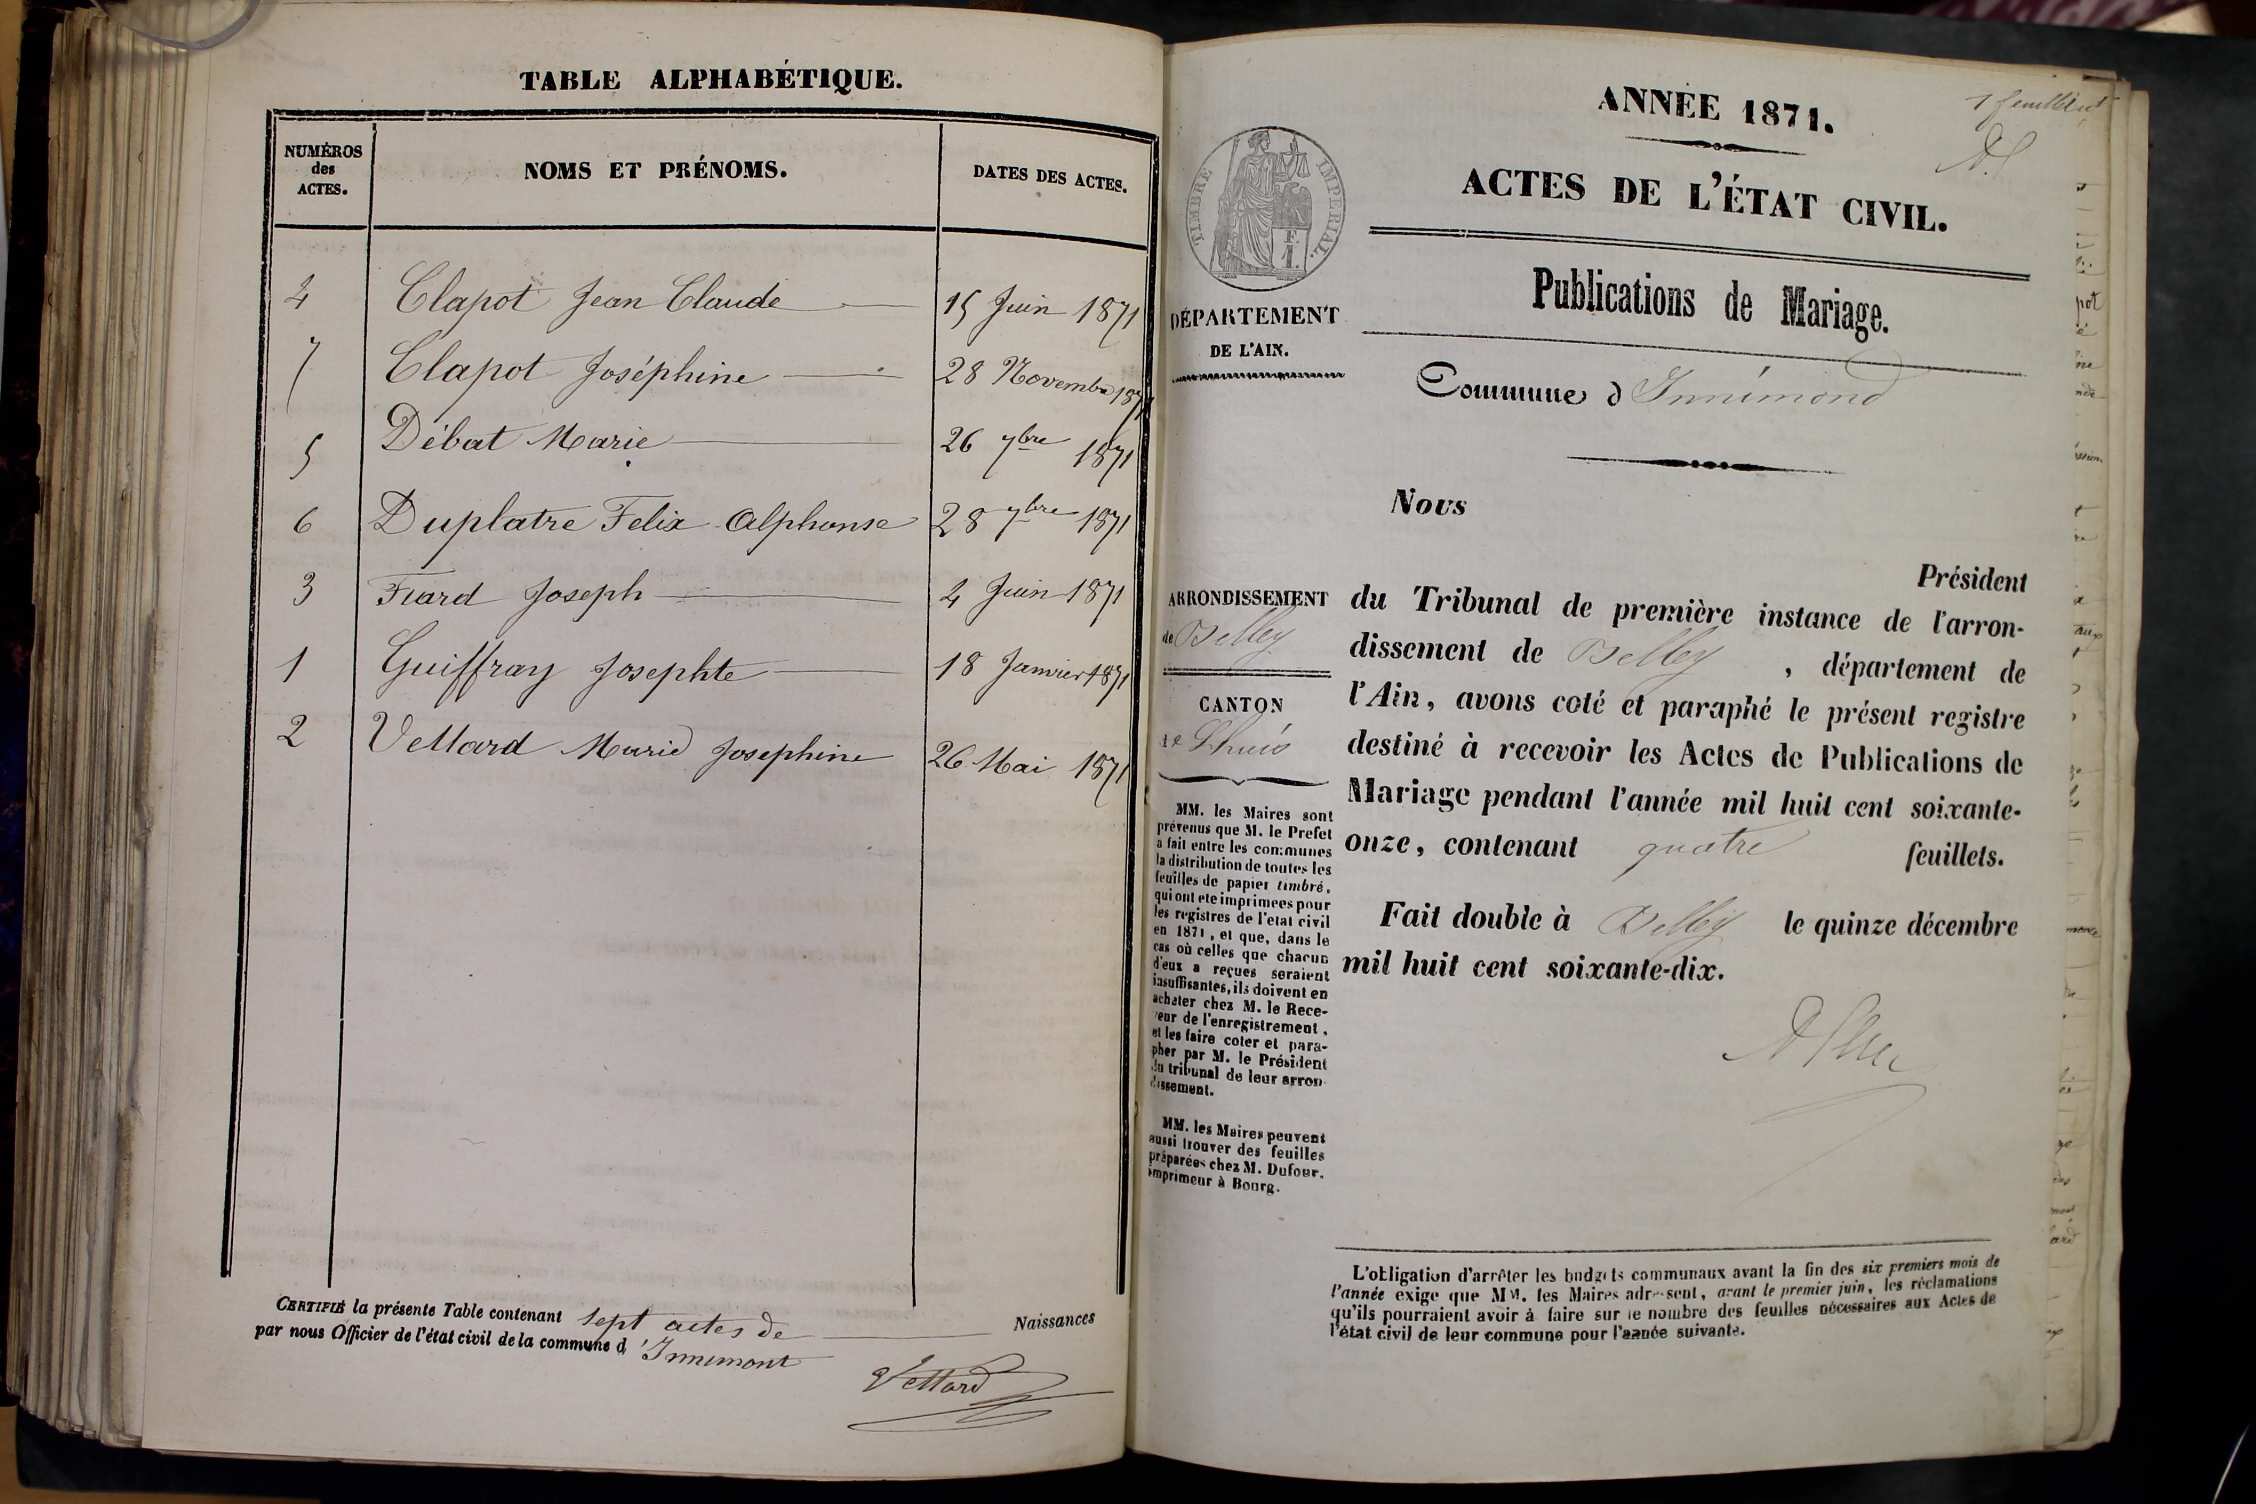 TABLE ALPHABÉTIQUE.
NUMÉROS
des
ACTES.
NOMS ET PRÉNOMS.
DATES DES ACTES.
4 Clapot Jean Claude 15 Juin 1871
7 Clapot Joséphine 28 Novembre 1871
5 Débat Marie 26 7bre 1871
6 Duplatre Felix Alphonse 28 7bre 1871
3 Fiard Joseph 4 Juin 1871
1 Guiffray Josephte 18 Janvier 1871
2 Vettard Marie Josephine 26 Mai 1871
CERTIFIÉ la présente Table contenant sept actes de Naissances
par nous Officier de l'état civil de la commune d'Innimont
Vettard
1 feuillet
ANNÉE 1871.
ACTES DE L'ÉTAT CIVIL.
TIMBRE IMPERIAL.
F.
1.
Publications de Mariage.
DÉPARTEMENT
DE L'AIN.
Commune d Innimond
Nous
Président
ARRONDISSEMENT
de Belley
CANTON
de Lhuis
du Tribunal de première instance de l'arron-
dissement de Belley, département de
l'Ain, avons coté et paraphé le présent registre
destiné à recevoir les Actes de Publications de
Mariage pendant l'année mil huit cent soixante-
onze, contenant quatre feuillets.
Fait double à Belley le quinze décembre
mil huit cent soixante-dix.
MM. les Maires sont
prévenus que M. le Prefet
a fait entre les communes
la distribution de toutes les
feuilles de papier timbré,
qui ont ete imprimees pour
les registres de l'etat civil
en 1871, et que, dans le
cas où celles que chacun
d'eux a reçues seraient
insuffisantes, ils doivent en
acheter chez M. le Rece-
veur de l'enregistrement,
et les faire coter et para-
pher par M. le Président
du tribunal de leur arron-
dissement.
MM. les Maires peuvent
aussi trouver des feuilles
préparées chez M. Dufour,
imprimeur à Bourg.
L'obligation d'arrêter les budgets communaux avant la fin des six premiers mois de
l'année exige que MM. les Maires adressent, avant le premier juin, les réclamations
qu'ils pourraient avoir à faire sur le nombre des feuilles nécessaires aux Actes de
l'état civil de leur commune pour l'année suivante.